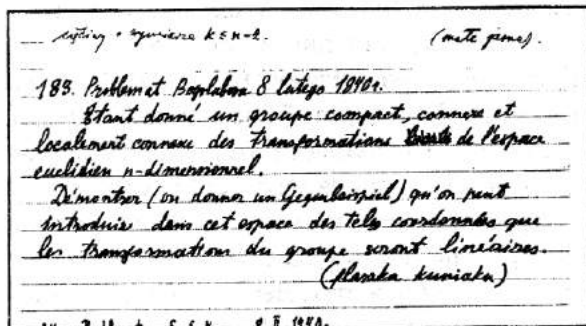 k ≤ n-2. (mate premi).
183. Problemat Bogolubow 8 lutego 1940r.
Etant donné un groupe compact, connexe et
localement connexe des transformations de l'espace
euclidien n-dimensionnel.
Démontrer (ou donner un Gegenbeispiel) qu'on peut
introduire dans cet espace des telles coordonnées que
les transformations du groupe seront linéaires.
(flaszka koniaku)
8 II 1940.